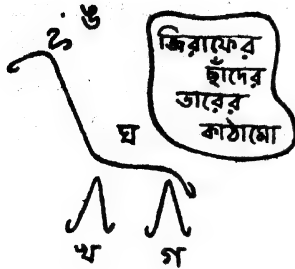 ঙ
জিরাফের
ছাঁদের
তারের
কাঠামো
ঘ
খ
গ